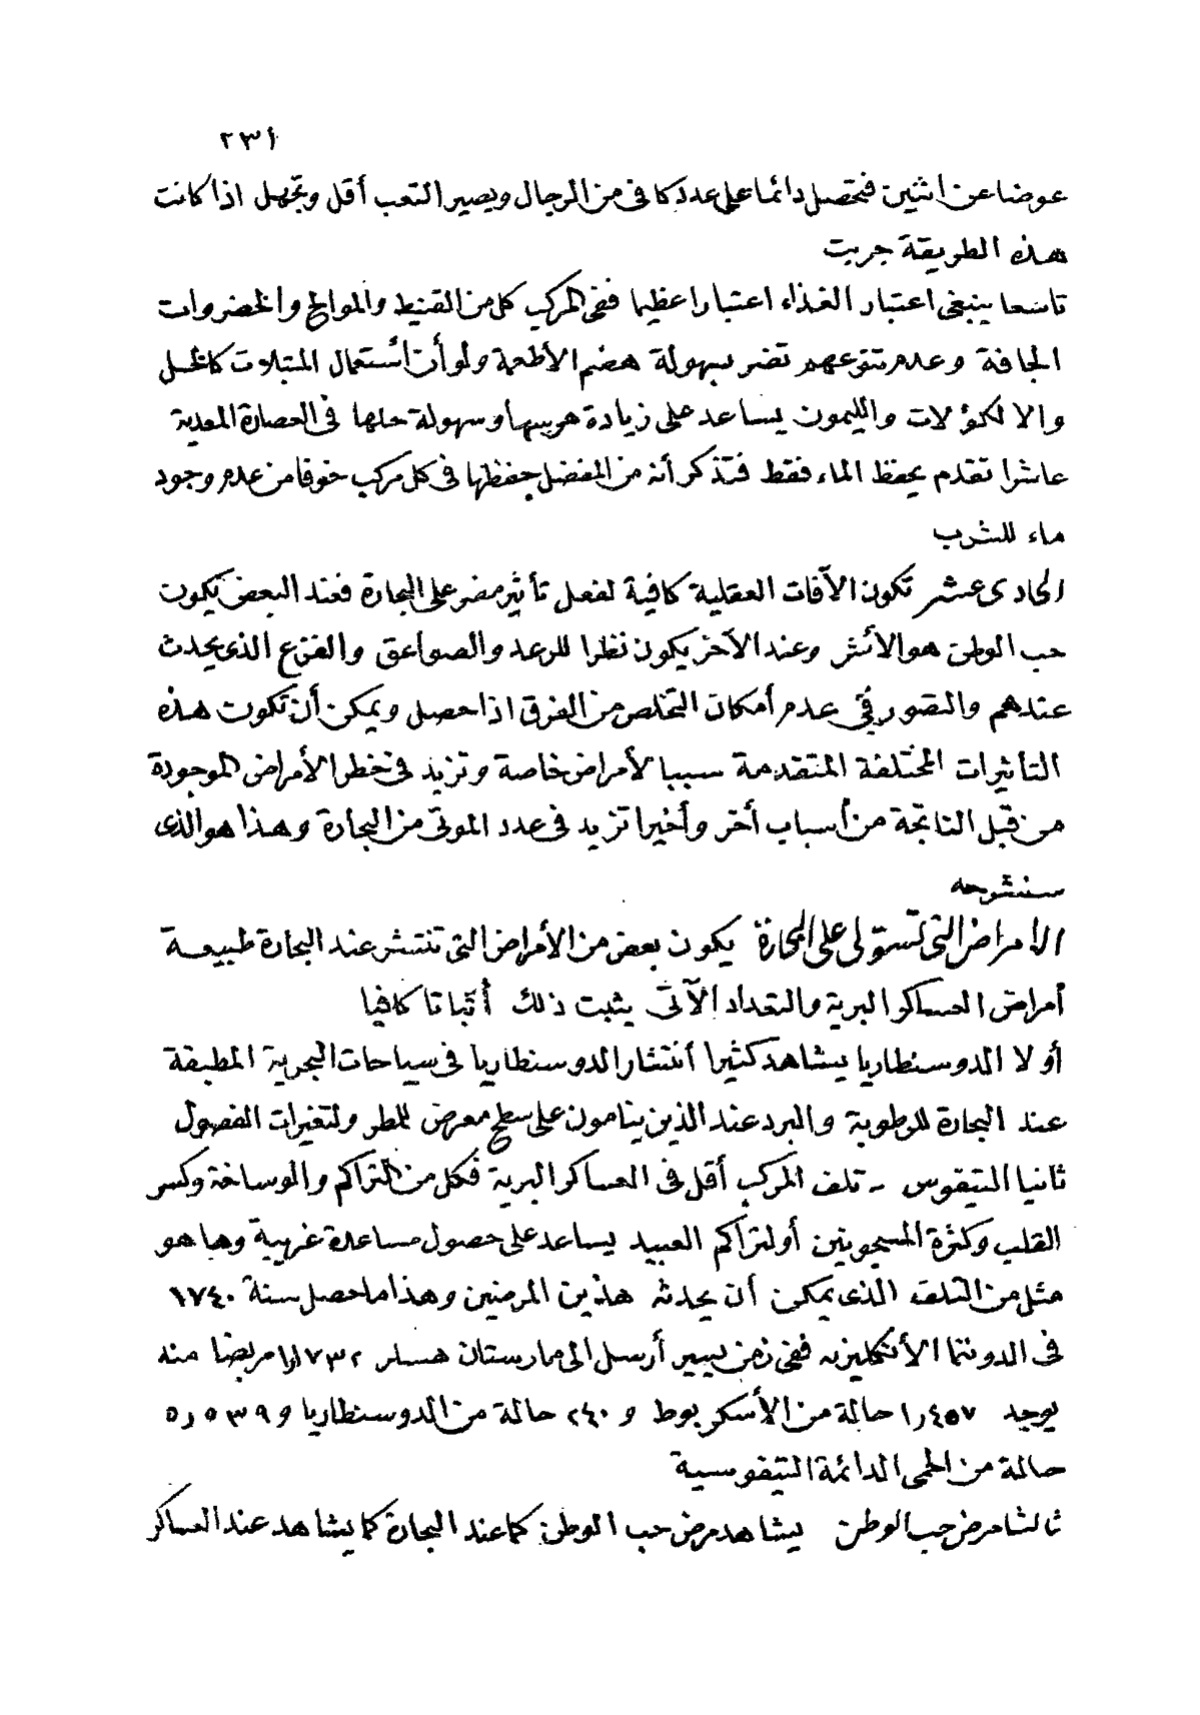 ٢٣١
عوضا عن اثنين فتحصل دائما على عدد كافى من الرجال ويصير التعب أقل وتجهل اذا كانت
هذه الطريقة جربت
تاسعا ينبغى اعتبار الغذاء اعتبارا عظيما ففى المركب كل من القنيط والموالح والخضروات
الجافة وعدم تنوعهم تضر بسهولة هضم الأطعمة ولو أن أستعمال المتبلات كالخل
والالكؤلات والليمون يساعد على زيادة هرسها وسهولة حلها فى العصارة المعدية
عاشرا تقدم بحفظ الماء فقط فنتذكر أنه من المفضل حفظها فى كل مركب خوفا من عدم وجود
ماء للشرب
الحادى عشر تكون الآفات العقلية كافية لفعل تأثير مضر على البحارة فعند البعض يكون
حب الوطن هو الأثر وعند الآخر يكون نظرا للرعد والصواعق والفزع الذى يحدث
عندهم والتصور فى عدم أمكان التخلص من الغرق اذا حصل ويمكن أن تكون هذه
التأثيرات المختلفة المتقدمة سببا لأمراض خاصة وتزيد فى خطر الأمراض الموجودة
من قبل الناتجة من أسباب أخر وأخيرا تزيد فى عدد الموتى من البحارة وهذا هو الذى
سنشرحه
الامراض التى تستولى على البحارة يكون بعض من الأمراض التى تنتشر عند البحارة طبيعة
أمراض العساكر البرية والتعداد الآتى يثبت ذلك أثباتا كافيا
أولا الدوسنطاريا يشاهد كثيرا أنتشار الدوسنطاريا فى سياحات البحرية المطبقة
عند البحارة للرطوبة والبرد عند الذين ينامون على سطح معرض للمطر ولتغيرات الفصول
ثانيا التيفوس ـ تلف المركب أقل فى العساكر البرية فكل من التراكم والوساخة وكسر
القلب وكثرة المسجونين أو لتراكم العبيد يساعد على حصول مساعدة غريبة وها هو
مثل من التلف الذى يمكن أن يحدثه هذين المرضين وهذا ما حصل سنة ١٧٤٠
فى الدوننما الأنكليزيه ففى زمن يسير أرسل الى مارستان هسلر ١١٧٣٢ مريضا منه
يوجد ١٫٤٥٧ حالة من الأسكربوط و ٢٤٠ حالة من الدوسنطاريا و ٥٫٥٣٩
حالة من الحمى الدائمة التيفوسية
ثالثا مرض حب الوطن يشاهد مرض حب الوطن كما عند البحارة كما يشاهد عند العساكر